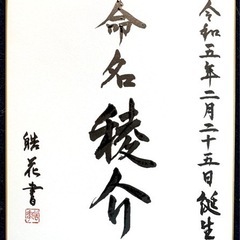 令和五年二月二十五日誕生
命名稜介
皓花書